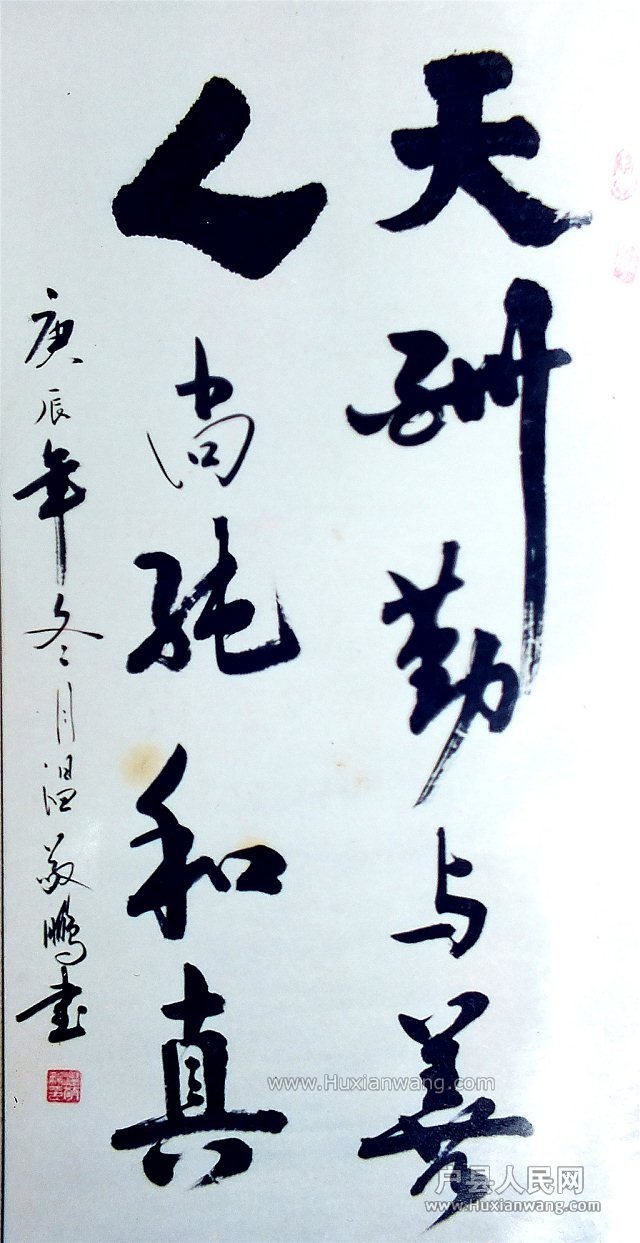 天酬勤与善
人尚纯和真
庚辰年冬月温敬鹏书
www.Huxianwang.com
户县人民网
www.Huxianwang.com